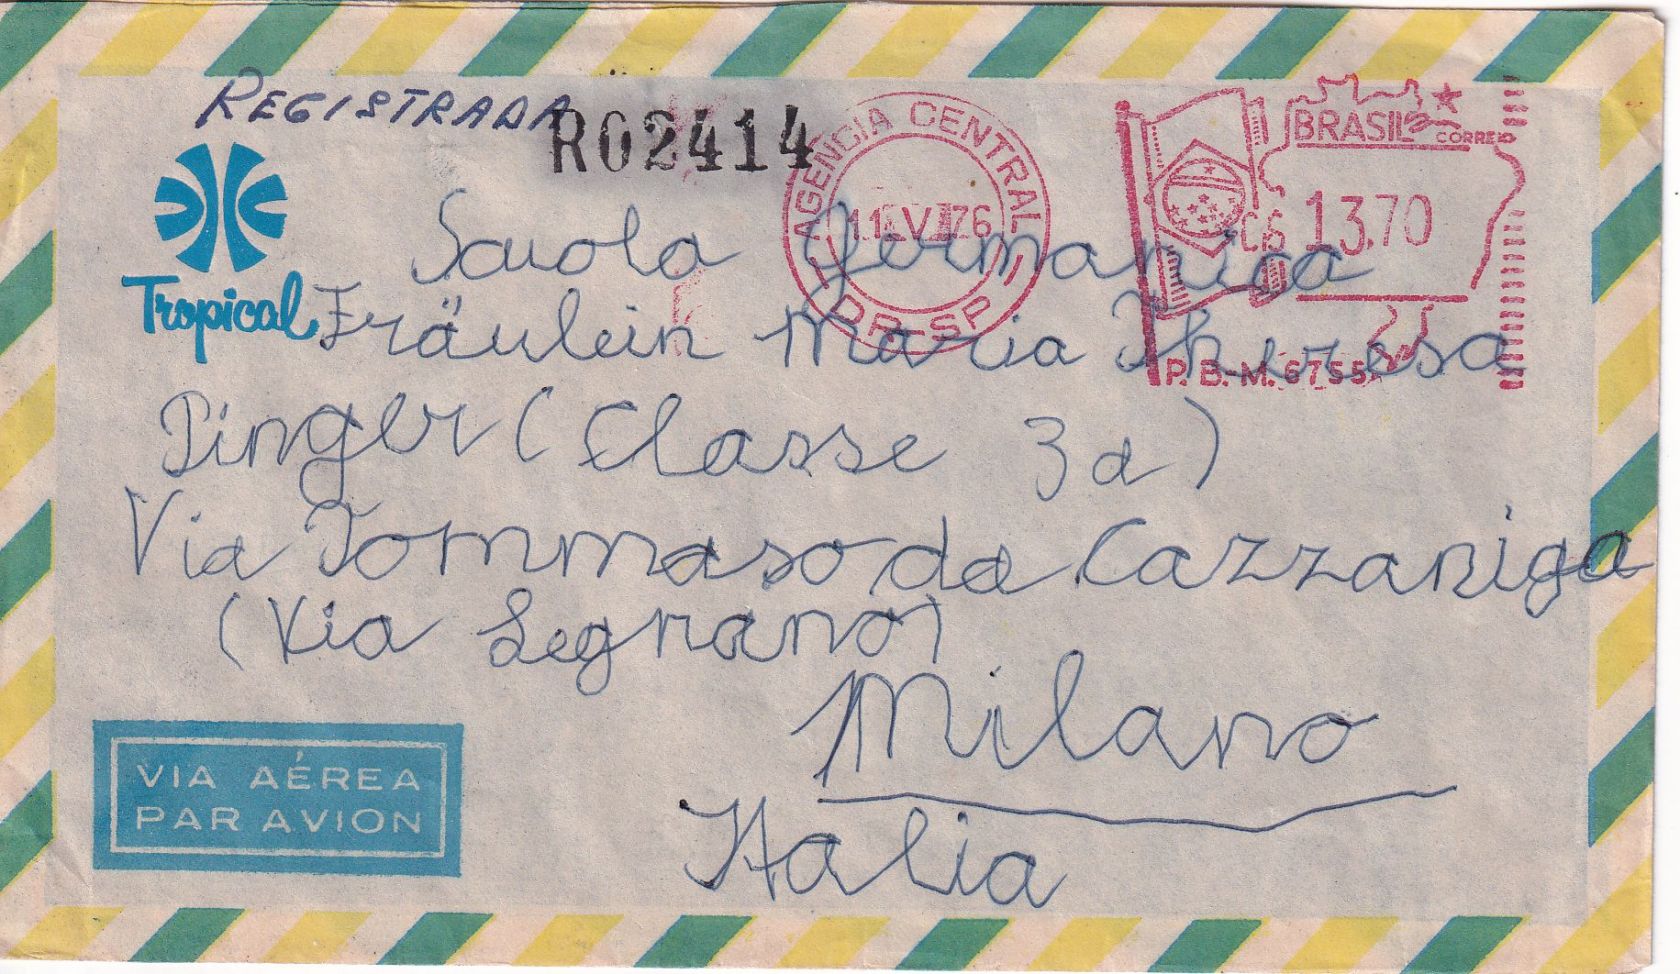 REGISTRADA
R02414
AGENCIA CENTRAL
DR-SP
BRASIL
CORREIO
13.70
P. B.-M. 6755
Tropical
Scuola Germanica
Fräulein Maria Theresa
Pinger (Classe 3a)
Via Tommaso da Cazzaniga
(Via Legnano)
Milano
Italia
VIA AÉREA
PAR AVION